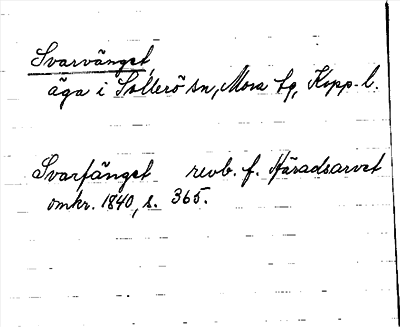 Svarvänget,
äga i Sollerö sn, Mora tg, Kopp. l.
Svarfänget revb. f. Häradsarvet
omkr. 1840, s. 365.